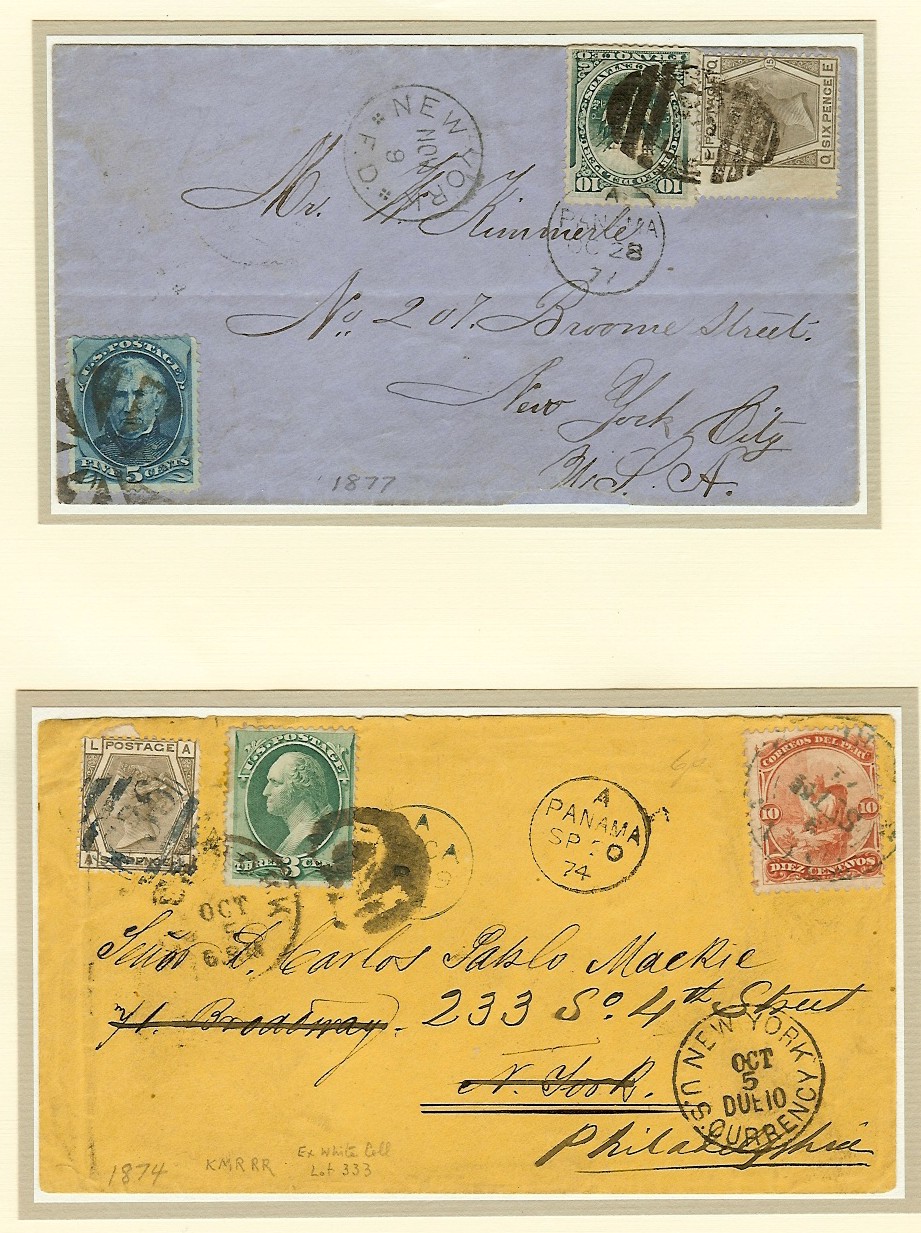 NEW YORK
NOV
9
F.D
10 10
Q SIX PENCE E
Mr. W. Kimmerle
A
PANAMA
OC 28
77
No. 207. Broome Street.
New York City
U.S.A.
U.S. POSTAGE
FIVE 5 CENTS
1877
L POSTAGE A
A SIX PENCE L
U.S. POSTAGE
THREE 3 CENTS
OCT
5
A
A
PANAMA
SP 20
74
CORREOS DEL PERU
10 10
DIEZ CENTAVOS
Señor D. Carlos Pablo Mackie
71. Broadway. 233 So. 4th Street
N. York.
Philadelphia
NEW YORK
OCT
5
DUE 10
U.S. CURRENCY
1874
KMRRR
Ex White Coll
Lot 333